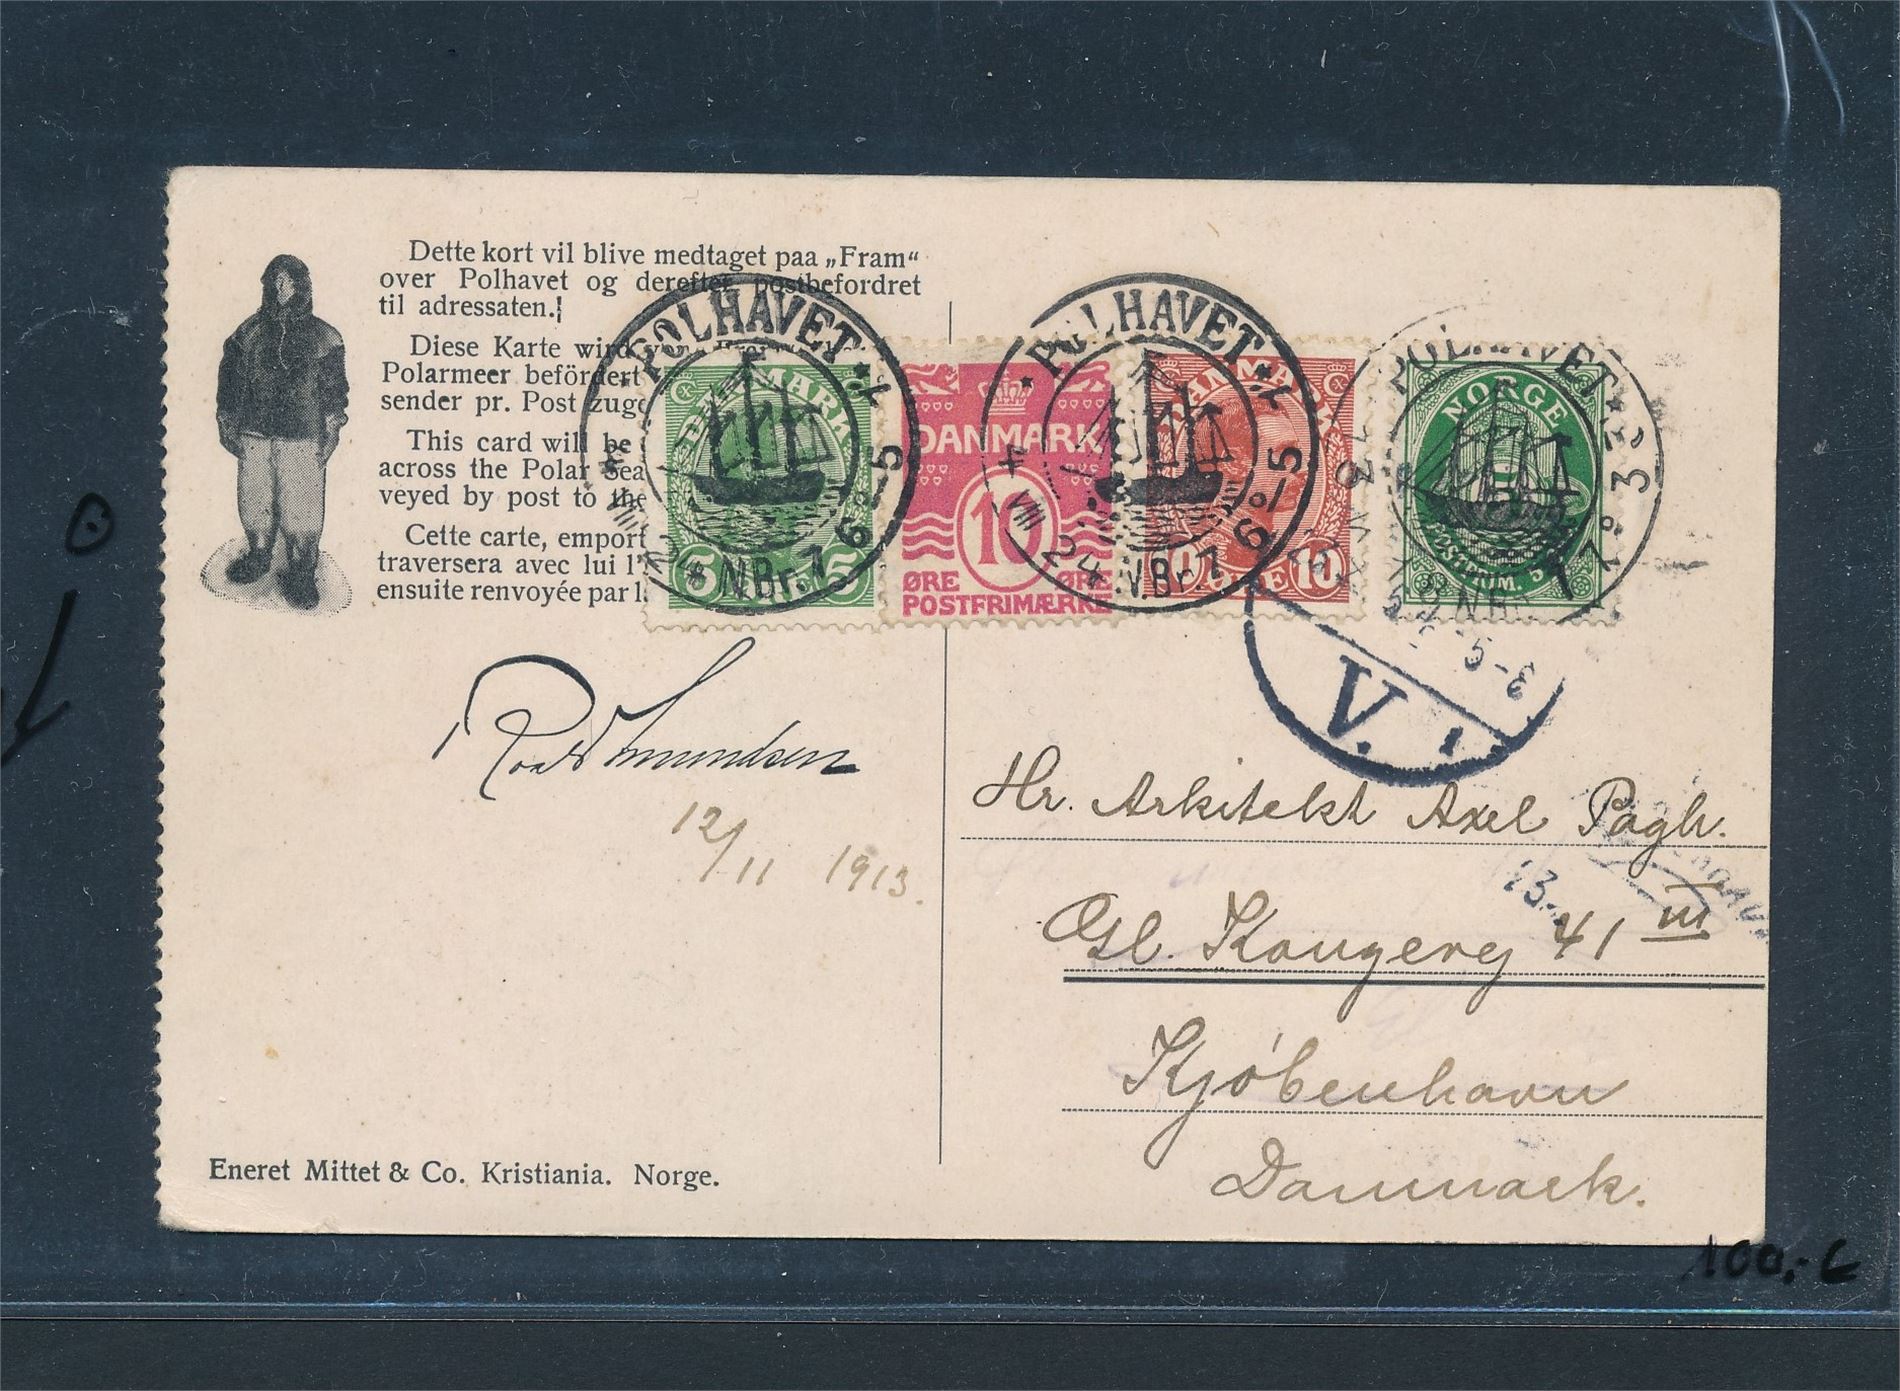 Dette kort vil blive medtaget paa „Fram“
over Polhavet og derefter postbefordret
til adressaten.
Diese Karte wird
Polarmeer befördert
sender pr. Post
This card will be
across the Polar Sea
veyed by post to the
Cette carte,
traversera avec lui
ensuite renvoyée par
POLHAVET
24 VII 4 6-5
N.Br.
5 5
DANMARK
10
ØRE ØRE
POSTFRIMÆRKE
POLHAVET
24 VII 4 6-5
N.Br.
DANMARK
10 ØRE 10
POLHAVET
NORGE
5
V.
Roald Amundsen
12/11 1913.
Hr. Arkitekt Axel Pagh.
Gl. Kongevej 41 III
Kjöbenhavn
Danmark.
Eneret Mittet & Co. Kristiania. Norge.
100,-